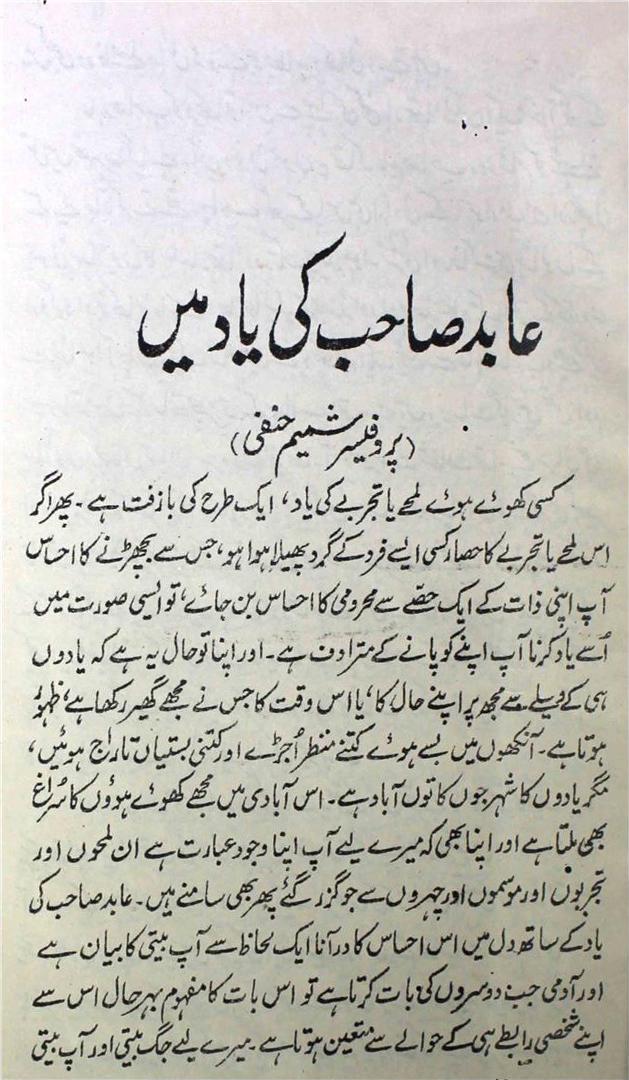 عابد صاحب کی یاد میں
(پروفیسر شمیم حنفی)
کسی کھوئے ہوئے لمحے یا تجربے کی یاد، ایک طرح کی بازفت ہے۔ پھر اگر
اس لمحے یا تجربے کا حصار کسی ایسے فرد کے گرد پھیلا ہوا ہو، جس سے بچھڑنے کا احساس
آپ اپنی ذات کے ایک حصّے سے محرومی کا احساس بن جائے، تو ایسی صورت میں
اُسے یاد کرنا آپ اپنے کو پانے کے مترادف ہے۔ اور اپنا تو حال یہ ہے کہ یادوں
ہی کے وسیلے سے مجھ پر اپنے حال کا، یا اس وقت کا جس نے مجھے گھیر رکھا ہے، ظہور
ہوتا ہے۔ آنکھوں میں بسے ہوئے کتنے منظر اُجڑے اور کتنی بستیاں تاراج ہوئیں،
مگر یادوں کا شہر جوں کا توں آباد ہے۔ اس آبادی میں مجھے کھوئے ہوؤں کا سُراغ
بھی ملتا ہے اور اپنا بھی کہ میرے لیے آپ اپنا وجود عبارت ہے ان لمحوں اور
تجربوں اور موسموں اور چہروں سے جو گزر گئے پھر بھی سامنے ہیں۔ عابد صاحب کی
یاد کے ساتھ دل میں اس احساس کا در آنا ایک لحاظ سے آپ بیتی کا بیان ہے
اور آدمی جب دوسروں کی بات کرتا ہے تو اس بات کا مفہوم بہرحال اس سے
اپنے شخصی رابطے ہی کے حوالے سے متعین ہوتا ہے۔ میرے لیے جگ بیتی اور آپ بیتی